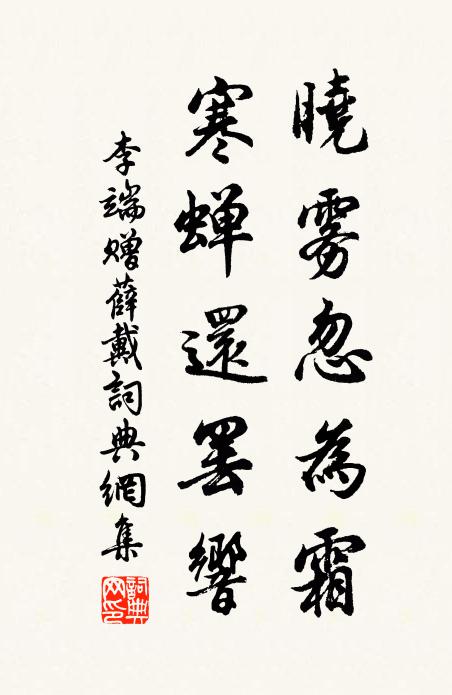 曉雾忽為霜
寒蝉還罢響
李端赠薛戴詞典網集
詞典网印